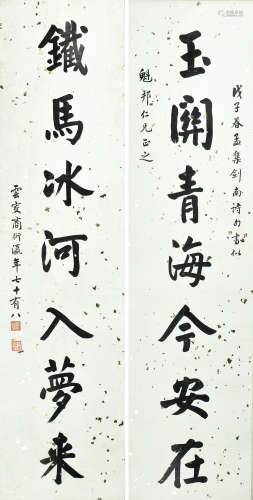 玉關青海今安在
戊子春孟集劍南诗句書似
魁邦仁兄正之
鐵馬冰河入夢来
雲亭商衍瀛年七十有八